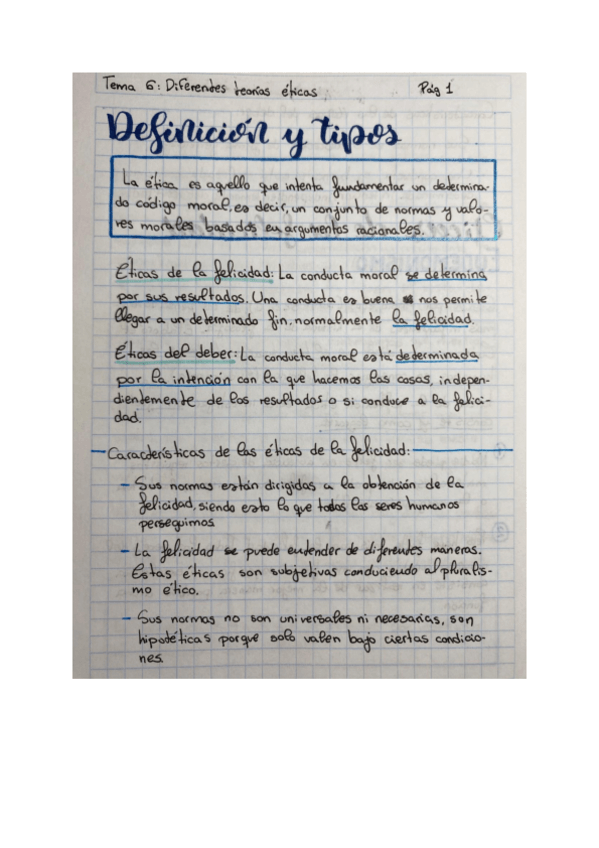 Tema 6: Diferentes teorías éticas Pág 1
Definición y tipos
La ética es aquello que intenta fundamentar un determina-
do código moral, es decir, un conjunto de normas y valo-
res morales basados en argumentos racionales.
Éticas de la felicidad: La conducta moral se determina
por sus resultados. Una conducta es buena si nos permite
llegar a un determinado fin, normalmente la felicidad.
Éticas del deber: La conducta moral está determinada
por la intención con la que hacemos las cosas, indepen-
dientemente de los resultados o si conduce a la felici-
dad.
Características de las éticas de la felicidad:
- Sus normas están dirigidas a la obtención de la
felicidad, siendo esto lo que todos los seres humanos
perseguimos
- La felicidad se puede entender de diferentes maneras.
Estas éticas son subjetivas conduciendo al pluralis-
mo ético.
- Sus normas no son universales ni necesarias, son
hipotéticas porque solo valen bajo ciertas condicio-
nes.